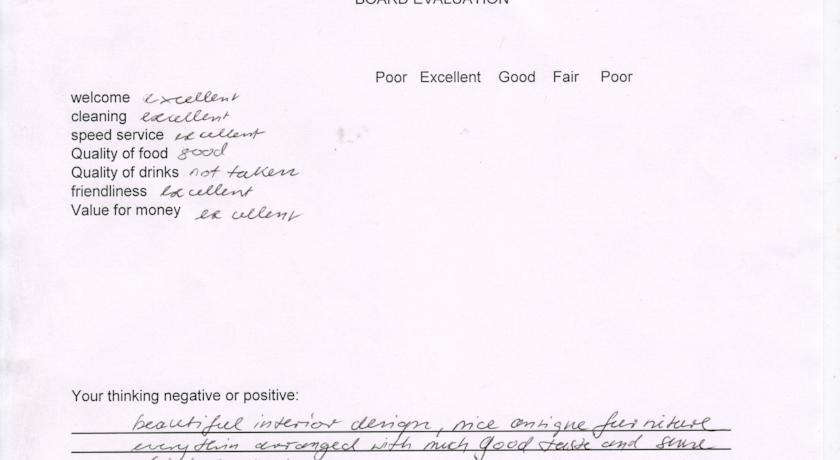 BOARD EVALUATION
Poor Excellent Good Fair Poor
welcome excellent
cleaning excellent
speed service excellent
Quality of food good
Quality of drinks not taken
friendliness excellent
Value for money excellent
Your thinking negative or positive:
beautiful interior design, nice antique furniture
everythin arranged with much good taste and sense